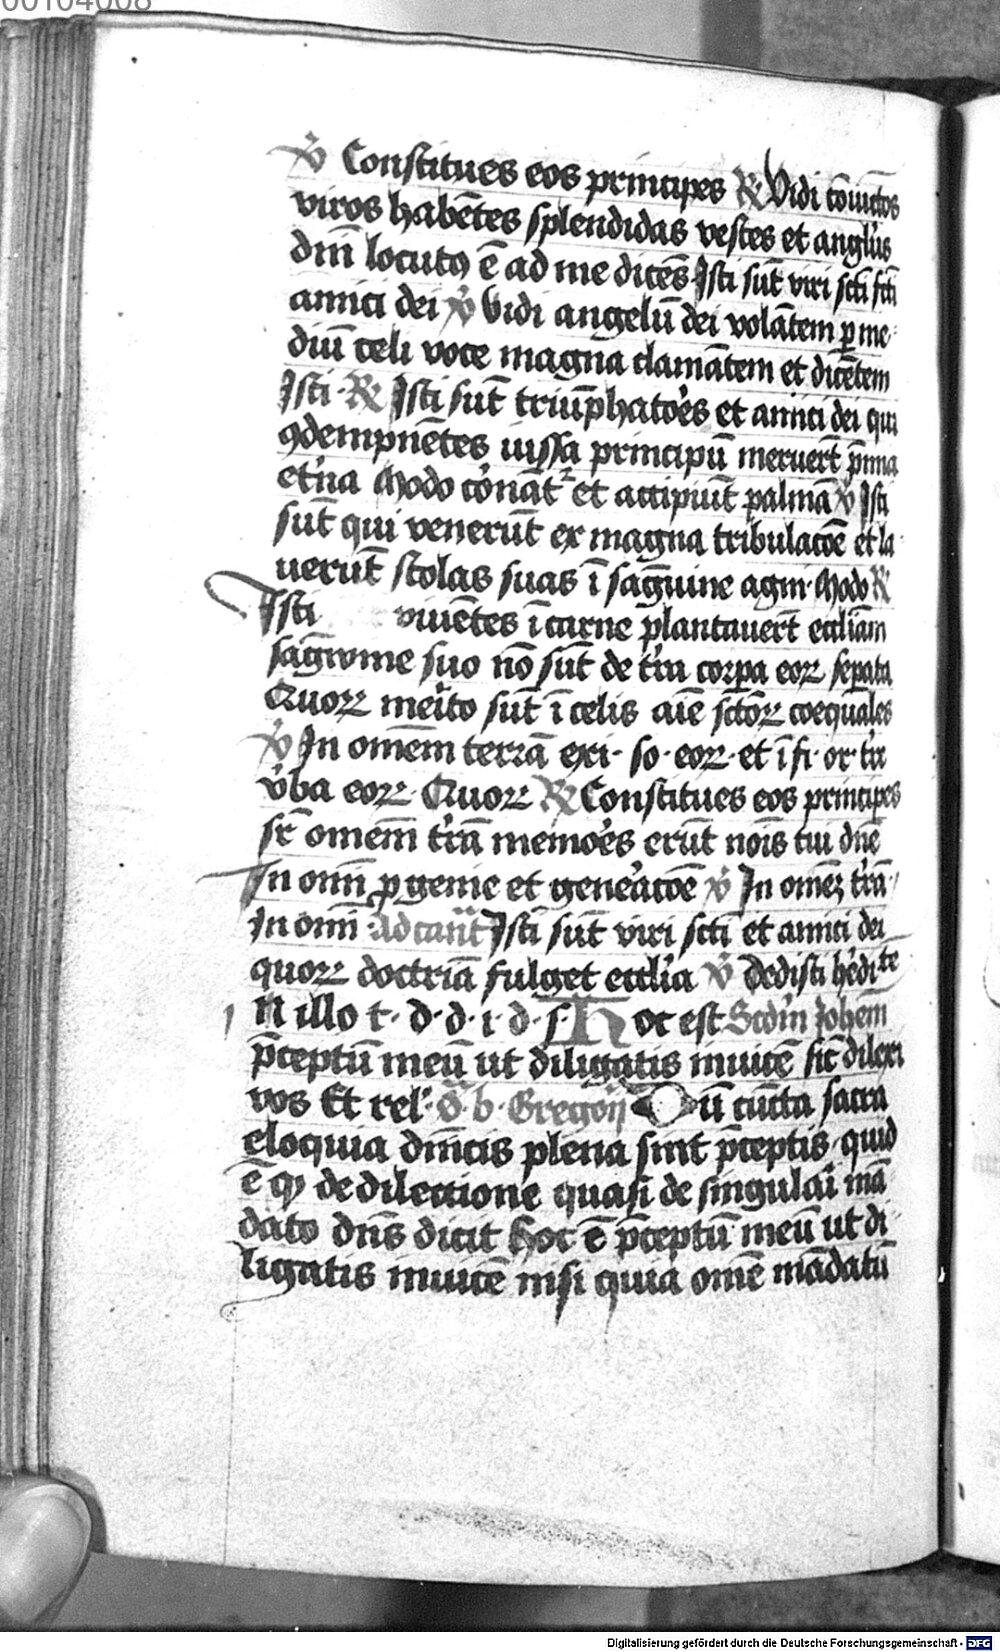 00104008
V̾ Constitues eos principes R̾ Vidi cōiūctos
viros habētes splendidas vestes et anglus
dn̄i locutꝰ ē ad me dicēs Isti sūt viri scti fcti
amici dei V̾ Vidi angelū dei volātem ꝑ me
diū celi voce magna clamātem et dicētem
Isti · R̾ Isti sūt triūphatoēs et amici dei qui
ꝯtempnētes iussa principū meruert̄ p̄mia
et̾na Modo co̾nāt᷑ et accipiūt palmā V̾ Isti
sūt qui venerūt ex magna tribulacōe et la
uerūt stolas suas ī sāguine agni · Modo R̾
Isti viuētes ī carne plantauert̄ eccliam
sāgwine suo nō sūt de t̾ra corpa eoꝝ sepata
Quoꝝ meito sūt ī celis aīe sctōꝝ coequales
V̾ In omēm terrā exi · so · eoꝝ · et ī fi · or · tr̄
v̾ba eoꝝ · Quoꝝ R̾ Constitues eos principes
sr̄ omēm tr̄ā memoēs erūt nōis tui dn̄e
In omī ꝓgenie et gene̾acōe V̾ In omēꝫ tr̄ā
In omī Ad cant̄ Isti sūt viri scti et amici dei
quoꝝ doctriā fulget ecclīa V̾ Dedisti he̾dite
N illo t · d · d · i · d · s · Hoc est Scdm̄ Johem̄
p̄ceptū meū ut diligatis inuicē sic̄ dilexi
vos Et rel · O b · Gregorij Cū cūcta sacra
eloquia dn̄icis plena sint p̄ceptis · quid
ē qꝫ de dilectione quasi de singulai mā
dato dn̄s dicit Hoc ē p̄ceptū meū ut di
ligatis inuicē nisi quia omē mādatū
Digitalisierung gefördert durch die Deutsche Forschungsgemeinschaft - DFG